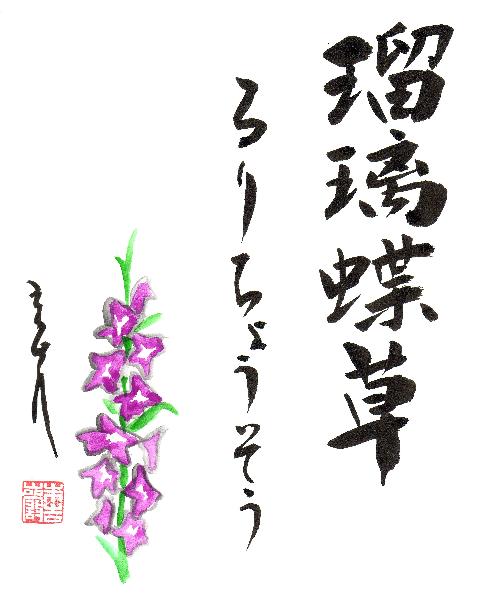 瑠璃蝶草
るりちょうそう